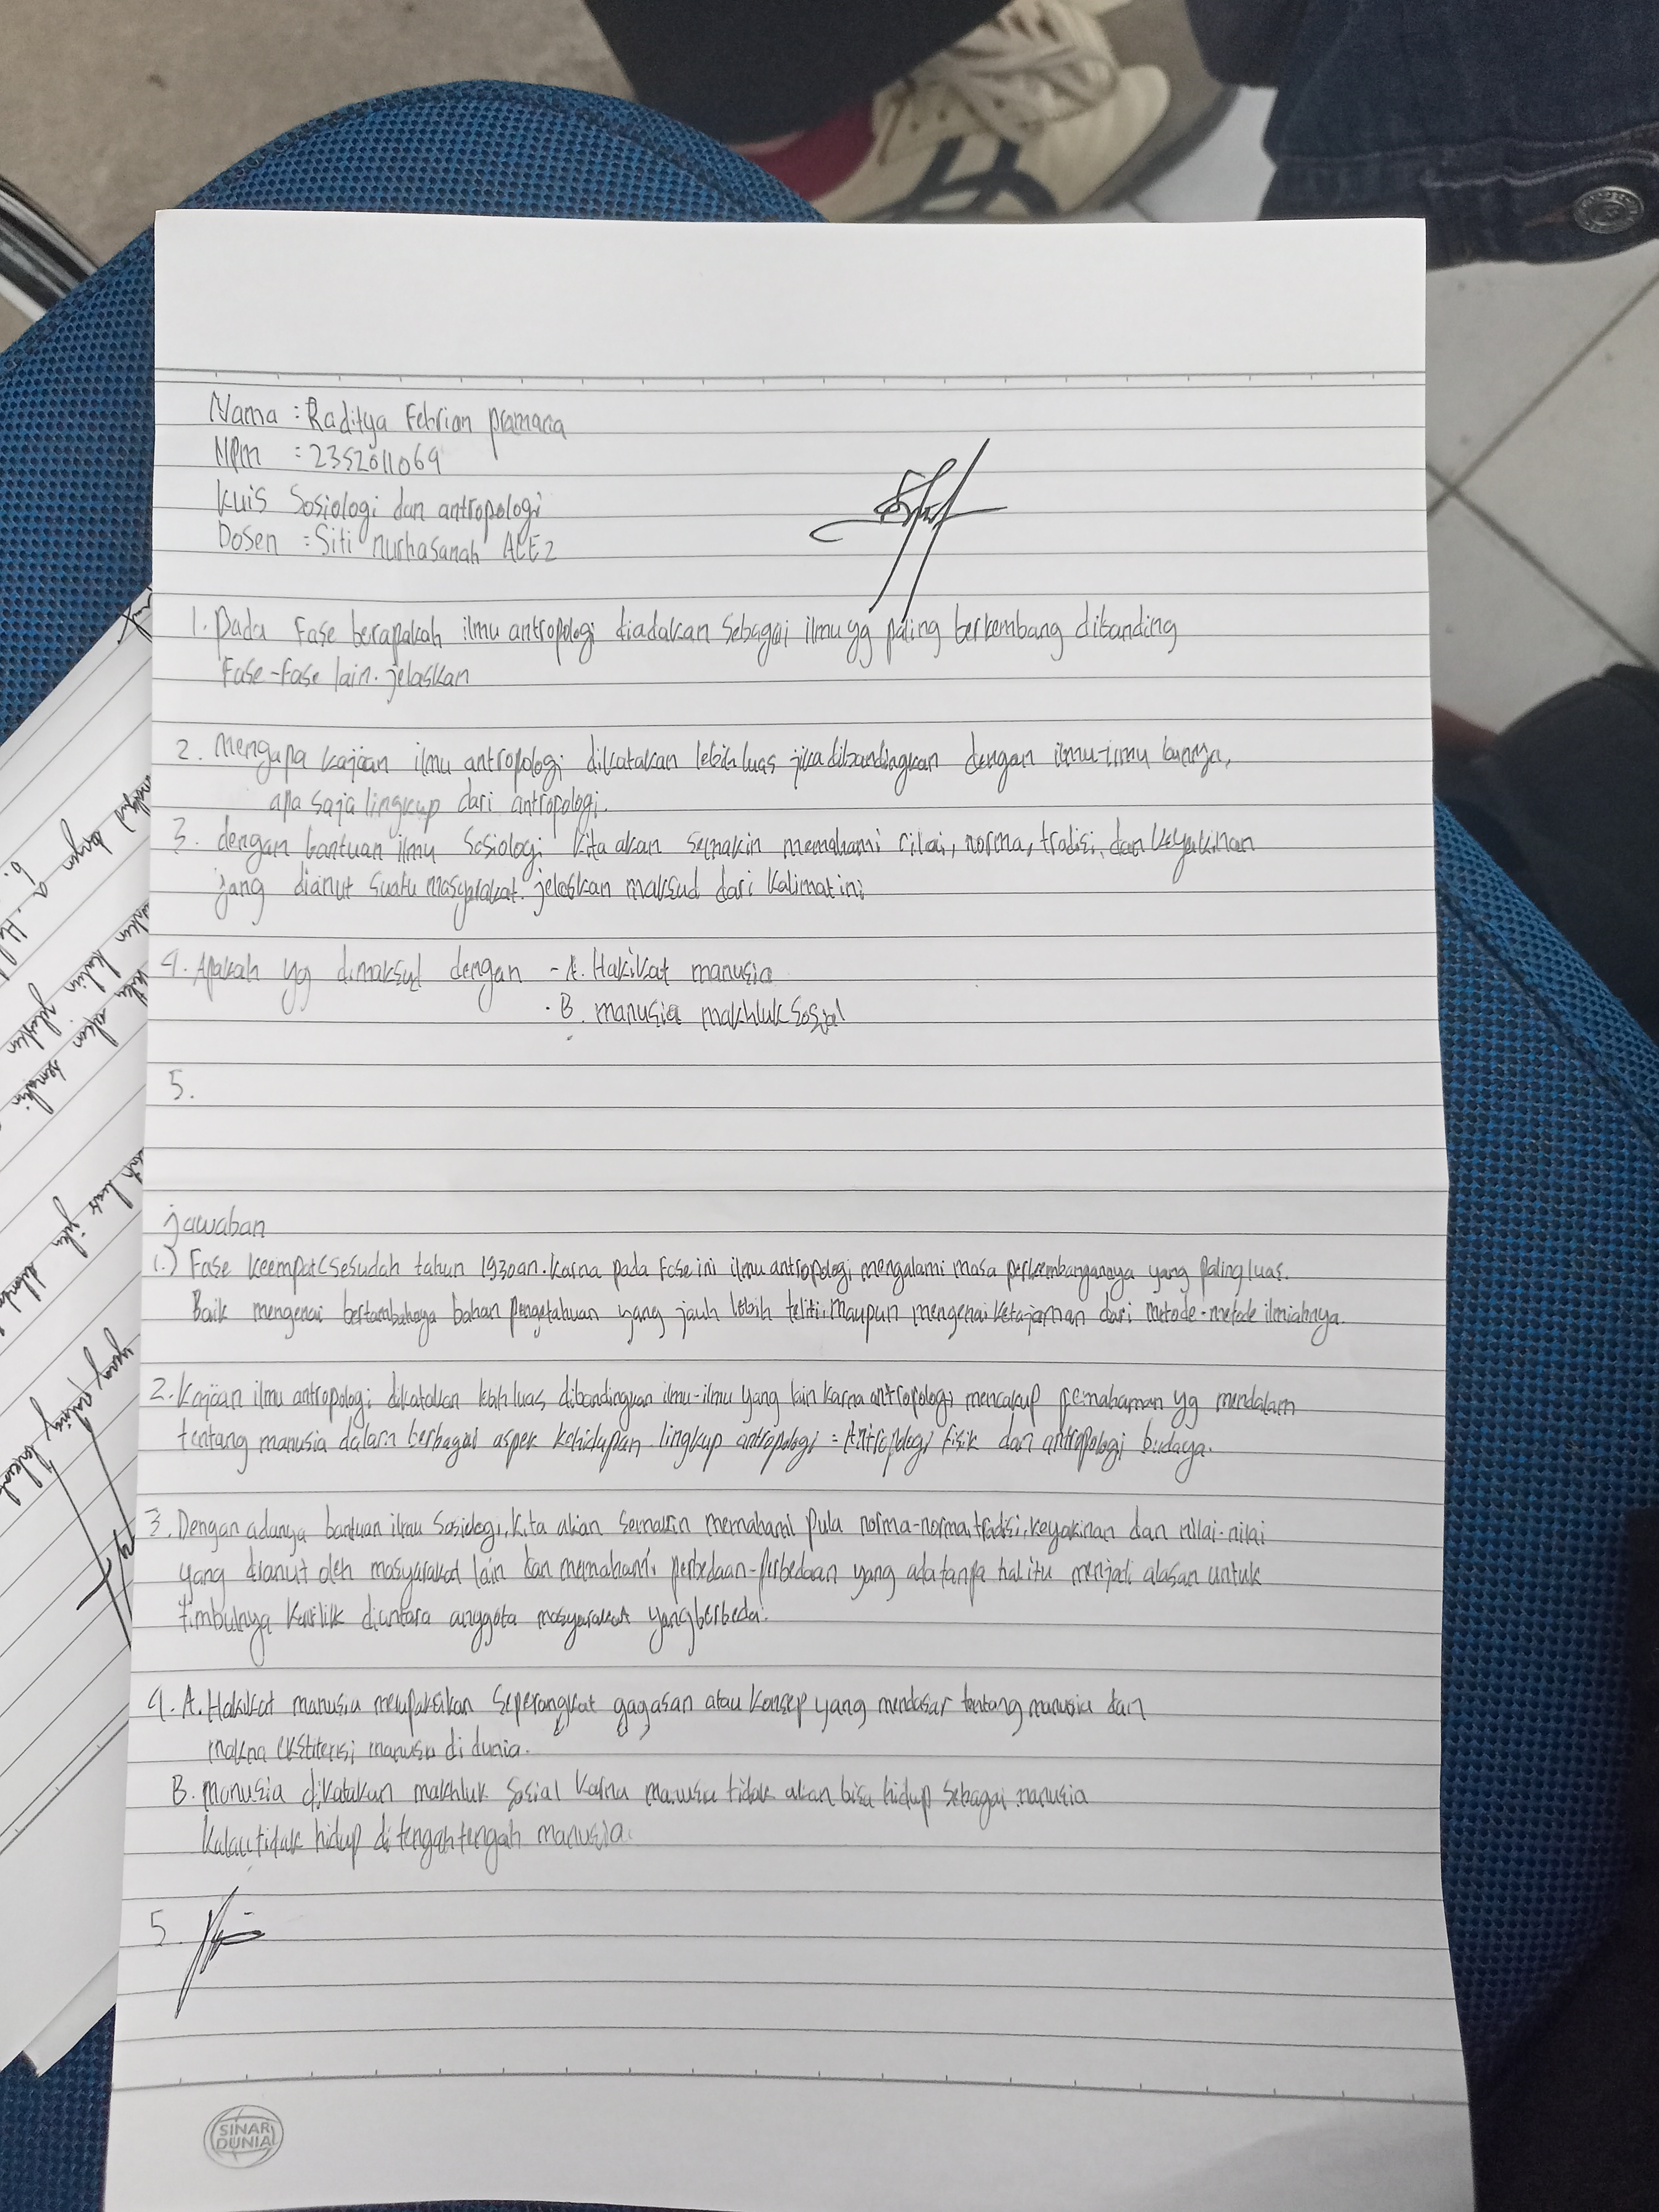 Nama : Raditya Febrian pramana
NPm : 2352011069
Kuis Sosiologi dan antropologi
Dosen : Siti nurhasanah
1. Pada Fase berapakah ilmu antropologi diadakan sebagai ilmu yg paling berkembang dibanding
Fase-Fase lain. jelaskan
2. mengapa kajian ilmu antropologi dikatakan lebih luas jika dibandingkan dengan ilmu-ilmu lainnya,
apa saja lingkup dari antropologi.
3. dengan bantuan ilmu Sosiologi kita akan semakin memahami nilai, norma, tradisi, dan keyakinan
yang dianut suatu masyarakat. jelaskan maksud dari kalimat ini
4. Apakah yg dimaksud dengan - A. Hakikat manusia
B. manusia makhluk Sosial
5.
jawaban
1.) Fase keempat (sesudah tahun 1930an. Karna pada Fase ini ilmu antropologi mengalami masa perkembangannya yang paling luas.
Baik mengenai bertambahnya bahan pengetahuan yang jauh lebih teliti, maupun mengenai ketajaman dari metode-metode ilmiahnya.
2. Kajian ilmu antropologi dikatakan lebih luas dibandingkan ilmu-ilmu yang lain karna antropologi mencakup pemahaman yg mendalam
tentang manusia dalam berbagai aspek kehidupan. lingkup antropologi = Antropologi fisik dan antropologi budaya.
3. Dengan adanya bantuan ilmu Sosiologi, kita akan semakin memahami pula norma-norma, tradisi, keyakinan dan nilai-nilai
yang dianut oleh masyarakat lain dan memahami perbedaan-perbedaan yang ada tanpa hal itu menjadi alasan untuk
timbulnya diantara anggota masyarakat yang berbeda.
4. A. Hakikat manusia Seperangkat gagasan atau konsep yang mendasar tentang manusia dan
makna manusia di dunia.
B. manusia dikatakan makhluk Sosial karna manusia tidak akan bisa hidup sebagai manusia
kalau tidak hidup di tengah tengah manusia.
5.
SINAR
DUNIA